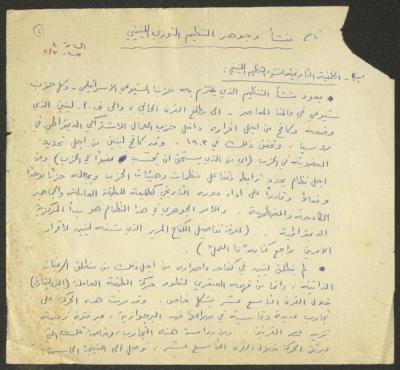 ①
ثامر منشأ وجوهر التنظيم الثوري اللينيني
- الخلفية التاريخية لنشوء التنظيم اللينيني:
• يعود منشأ التنظيم الذي يلتزم به حزبنا الشيوعي الاسرائيلي - وكل حزب
شيوعي في عالمنا المعاصر - الى مطلع القرن الحالي، والى ف.أ. لينين الذي
وضعه وكافح من اجل اقراره داخل حزب العمال الاشتراكي الديمقراطي في
روسيا، وتحقق ذلك في ١٩٠٣. وقد كافح لينين من اجل تحديد
العضوية في الحزب (اي من الذي يستحق ان يحسب عضوا في الحزب) ومن
اجل نظام يحدد ترابط وتفاعل منظمات وهيئات الحزب ويجعله حزبا موحدا
وفعالا وقادرا على اداء دوره التاريخي كطليعة للطبقة العاملة والجماهير
الكادحة والمضطهدة. والامر الجوهري في هذا النظام هو مبدأ المركزية
الديمقراطية. (لمعرفة تفاصيل الكفاح المرير الذي شنه لينين لاقرار
الامرين راجع كتابه "ما العمل").
• لم ينطلق لينين في كفاحه واصراره من اجل ذلك من منطلق الرغبات
الذاتية، وانما من فهمه العبقري لتطور حركة الطبقة العاملة (البروليتاريا)
خلال القرن التاسع عشر بشكل خاص. وقد مرت هذه الحركة على
تجارب عديدة وقاسية في صراعها ضد البرجوازية، عبر فترة زمنية
تزيد عن القرنين. ومن دراسة هذه التجارب، وخاصة تلك التي
عبرتها الحركة خلال القرن التاسع عشر، توصل الى النتيجة الحاسمة: